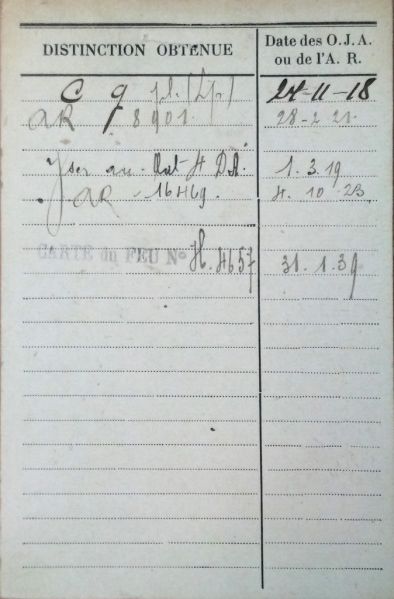 DISTINCTION OBTENUE
Date des O.J.A. ou de l'A. R.
C g pl. (Lp.) 24-11-18
AR 8901. 28-2 21.
Yser au. DA. 1. 3. 19
AR 16469. 4. 10 23
CARTE du FEU N° H. 4657 31. 1. 39